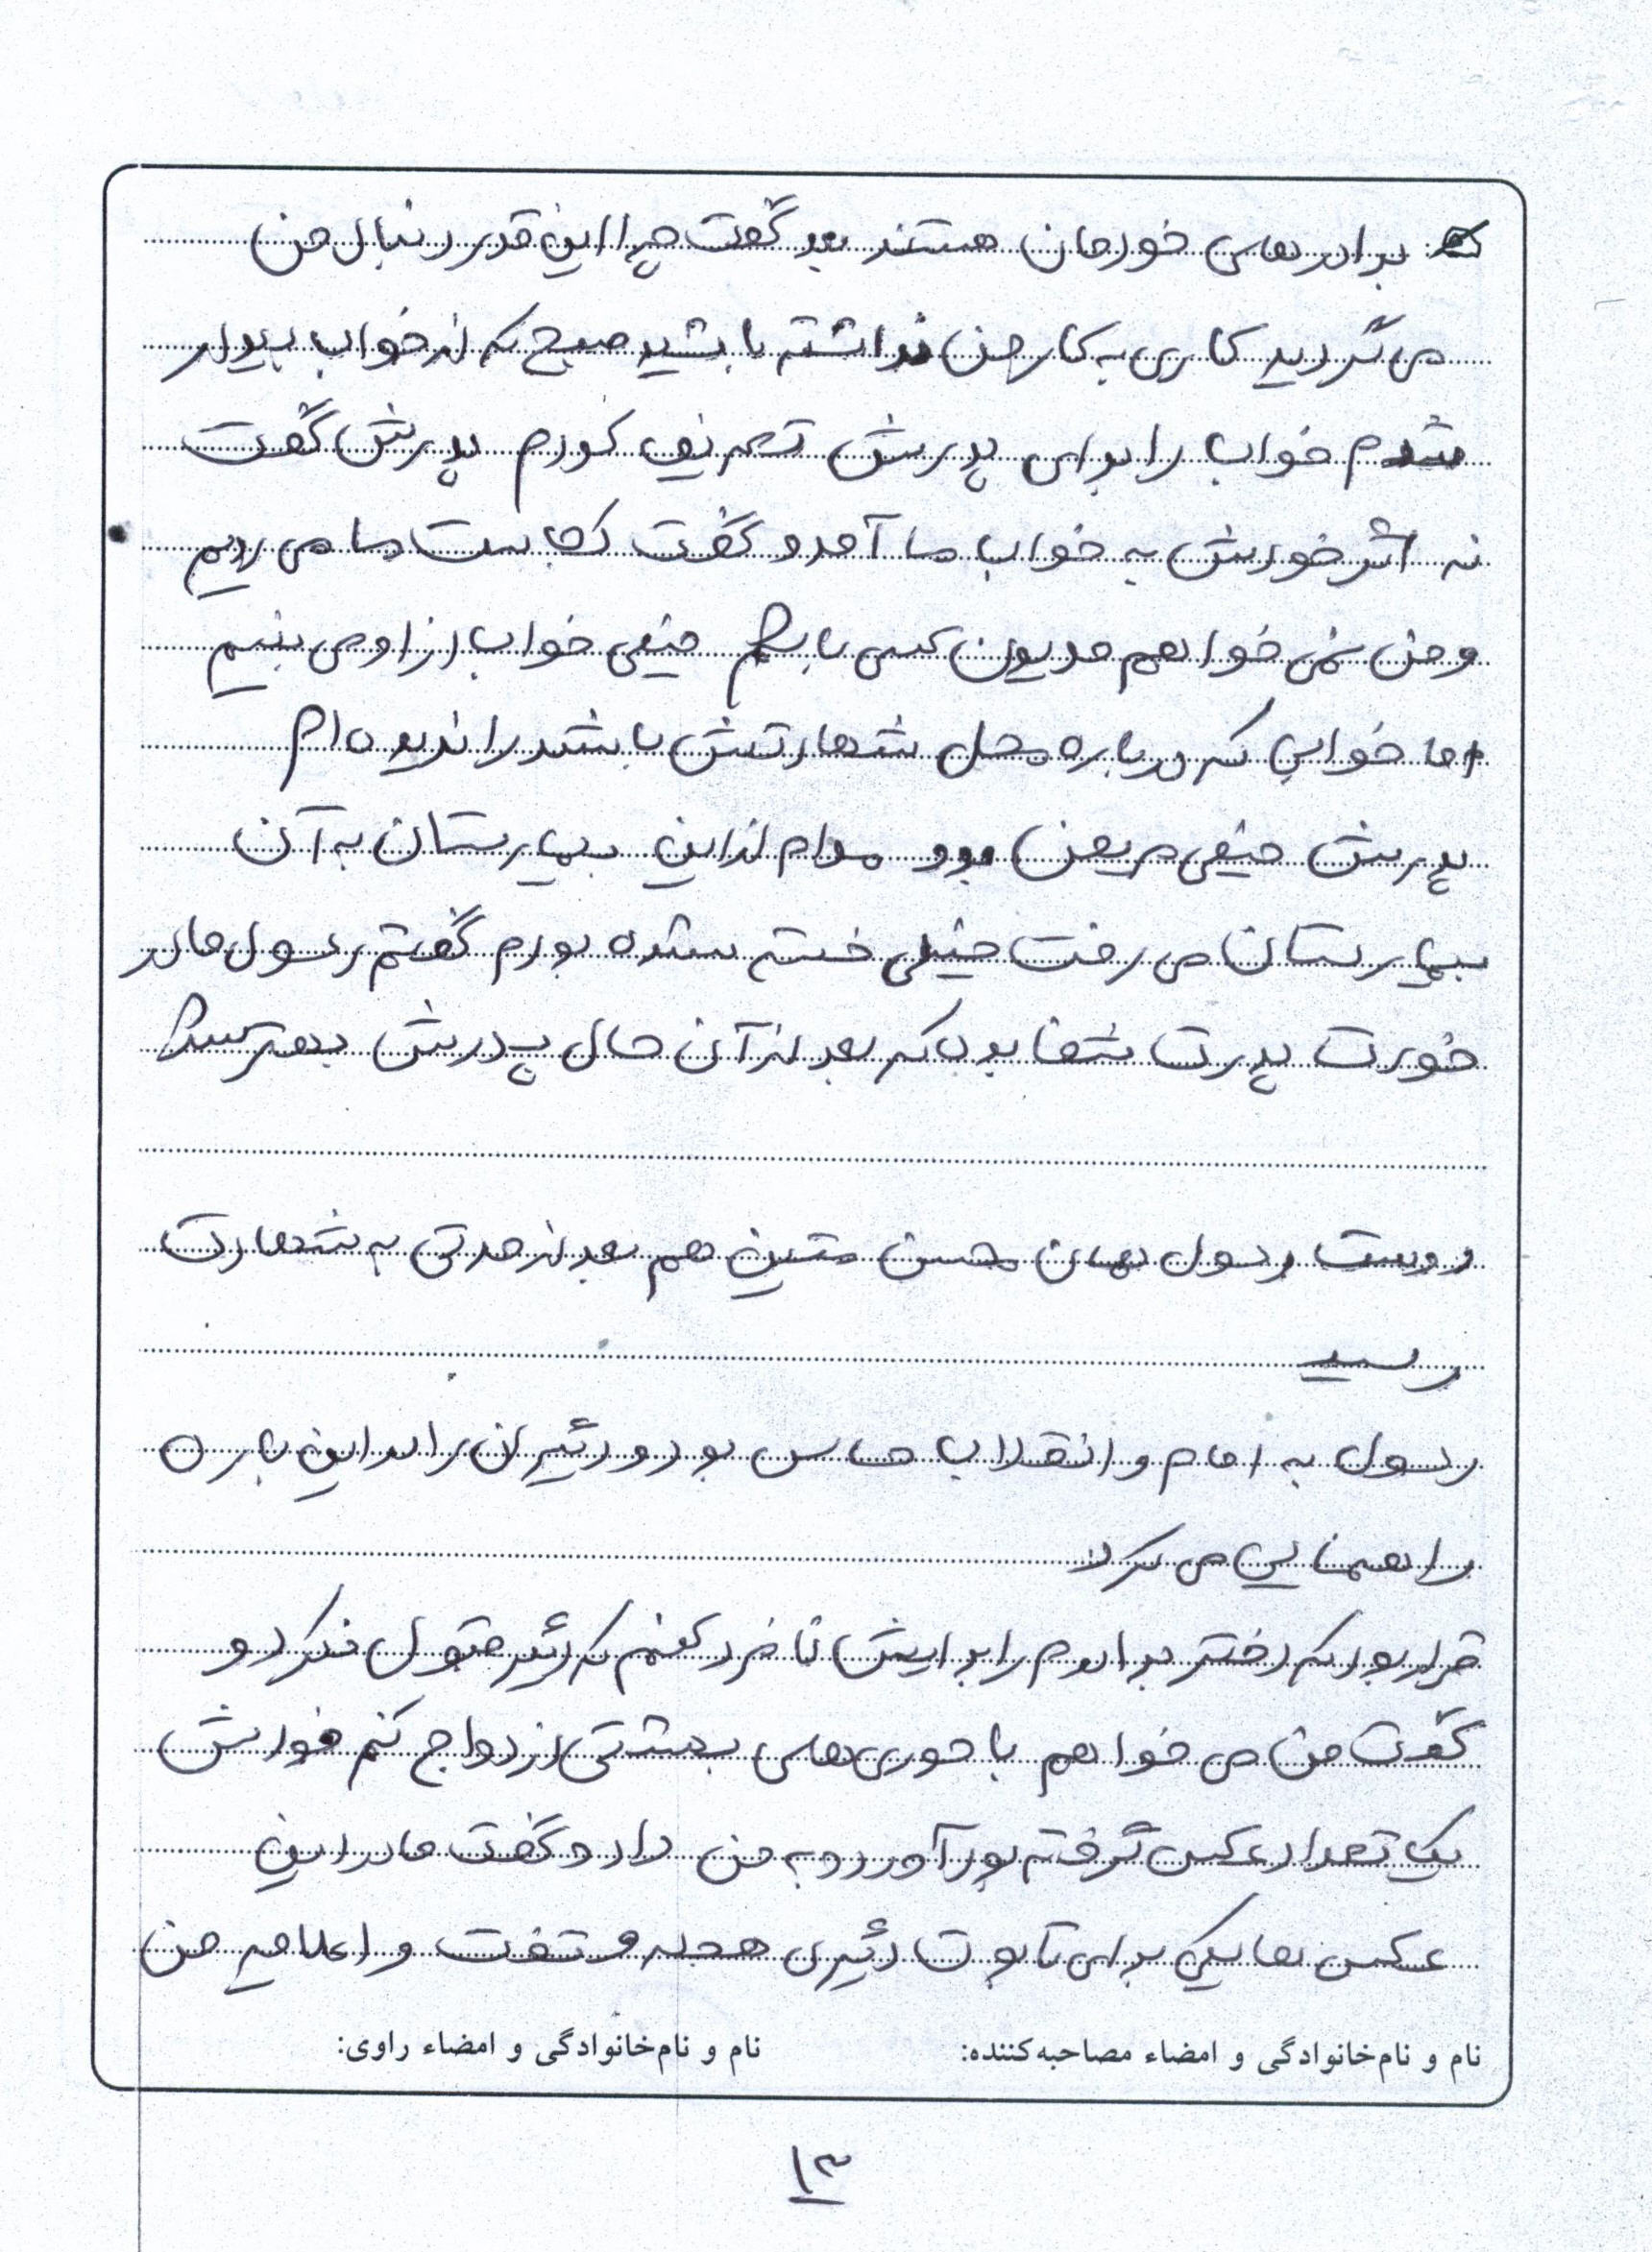 برادرهای خودمان هستند بعد گفت چرا این قدر دنبال من
می گردید کاری به کار من نداشته باشید صبح که از خواب بیدار
شدم خواب را برای پدرش تعریف کردم پدرش گفت
نه اگر خودش به خواب ما آمد و گفت کجاست ما می رویم
و من نمی خواهم مدیون کسی باشم خیلی خواب از او می بینیم
اما خوابی که درباره محل شهادتش باشد را ندیده ام
پدرش خیلی مریض بود مدام از این بیمارستان به آن
بیمارستان می رفت خیلی خسته شده بودم گفتم رسول مادر
خودت پدرت شفا بده که بعد از آن حال پدرش بهتر شد
دوست رسول همان محسن متین هم بعد از مدتی به شهادت
رسید
رسول به امام و انقلاب حساس بود و دیگران را در این باره
راهنمایی می کرد
قرار بود که دختر برادرم را برایش نامزد کنم که دیگر قبول نکرد و
گفت من می خواهم با حوری های بهشتی ازدواج کنم خودش
یک تعداد عکس گرفته بود آورد و به من داد و گفت مادر این
عکس ها یکی برای تابوت دیگری حجله و تفت و اعلامیه من
نام و نام‌خانوادگی و امضاء مصاحبه‌کننده: نام و نام‌خانوادگی و امضاء راوی:
۱۳